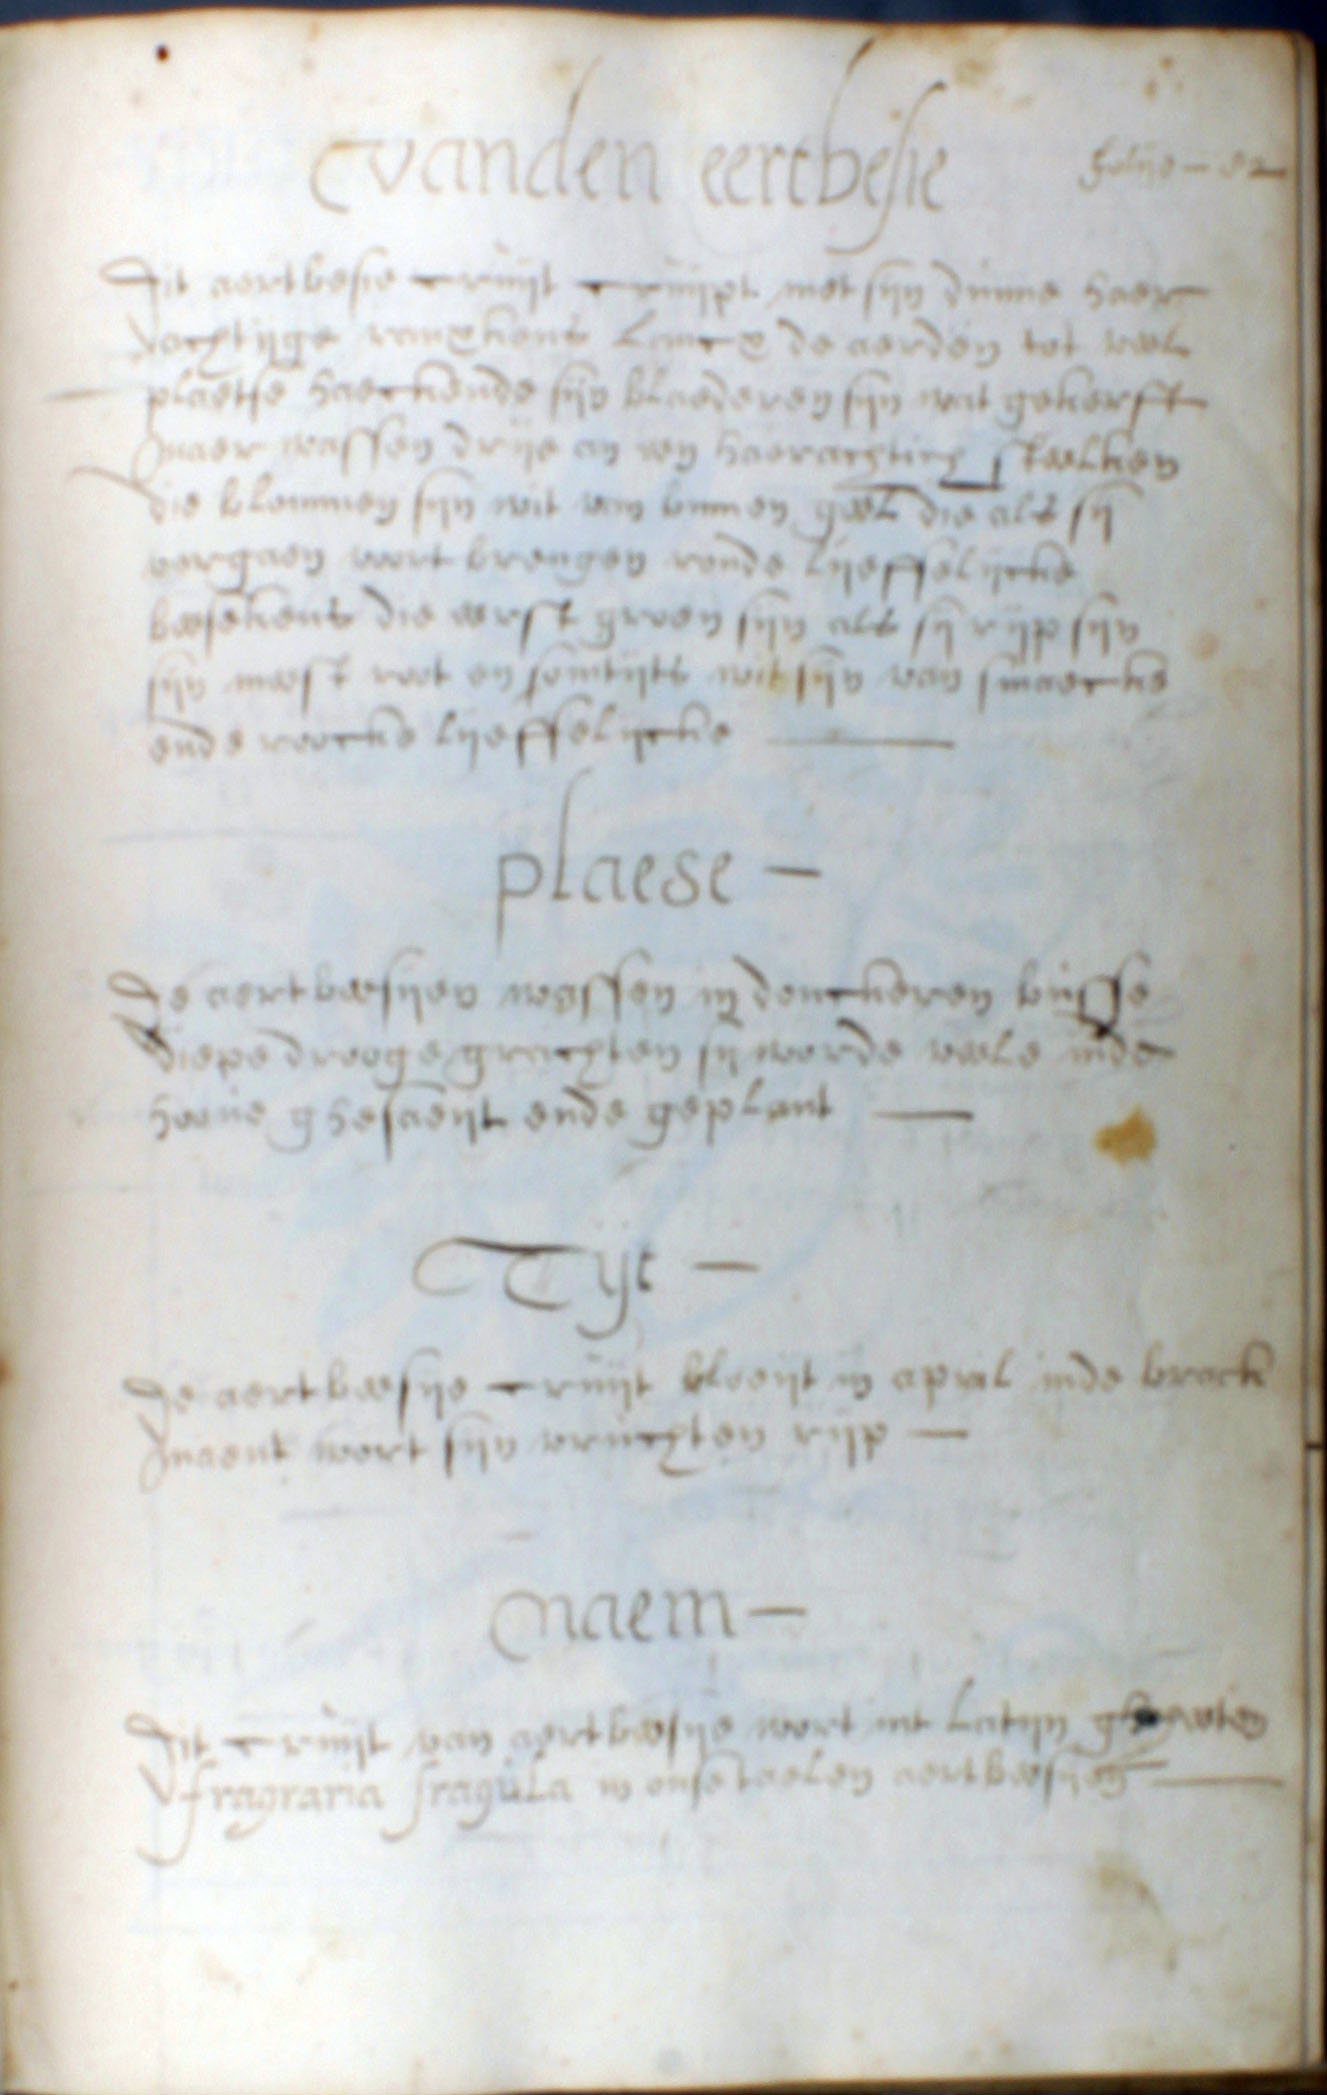 vanden eertbesie
folijo
Dit aertbesie cruijt cruijpt met sijn dunne haer
achtijge ranckens lancx de aerden tot veel
plaetse haeckende sijn bladeren sijn wit gekerft
maer wassen drije an een haerachtich steelken
die blommen sijn wit van binnen geel die als sij
vergaen voort brengen ronde lijeffelijcke
beesekens die eerst groen sijn als sij rijp sijn
sijn meest root en somtijts wit sijn van smaecke
ende roocke lijeffelijcke
plaese
De aertbeesijen wassen in donckeren busse
diepe drooge grachten sij worde veele inde
hoove ghesaeijt ende geplant
Tijt
De aertbeesije cruijt bloeijt in april inde brack
maent wort sijn vruchten rijp
naem
Dit cruijt van aertbeesije wort int Latijn gheeeten
fragraria fragula in onse taelen aertbeesijen